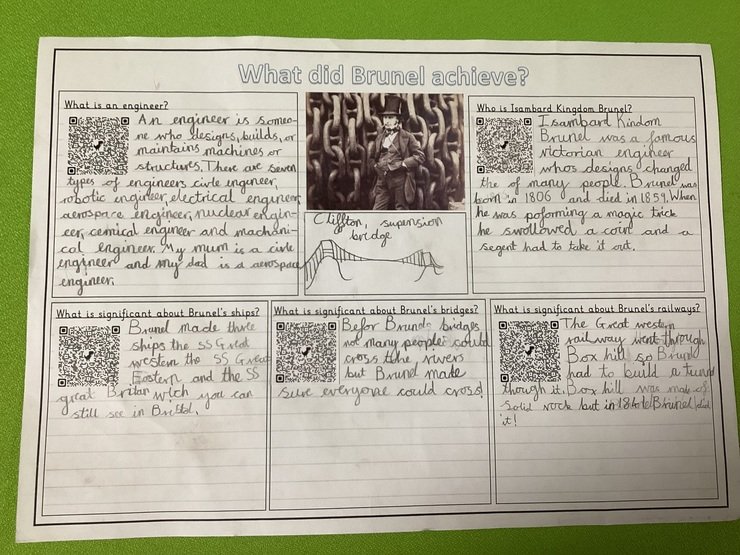 What did Brunel achieve?
What is an engineer?
An engineer is someo-
ne who designs, builds, or
maintains machines or
structures. There are seven
types of engineers civle ingeneer,
robotic engineer, electrical engineer
aerospace engineer, nuclear engin-
eer, cemical engineer and machani-
cal engineer. My mum is a civle
engineer and my dad is a aerospace
engineer.
Cliffton, supension
bridge
Who is Isambard Kingdom Brunel?
Isambard Kindom
Brunel was a famous
victorian engineer
whos designs changed
the of many people. Brunel was
born in 1806 and died in 1859. When
he was pofoming a magic trick
he swollowed a coin and a
segent had to take it out.
What is significant about Brunel's ships?
Brunel made three
ships the SS Great
western the SS Great
Eastern and the SS
great Britan wich you can
still see in Bristol.
What is significant about Brunel's bridges?
Befor Brunels bridges
not many people could
cross the rivers
but Brunel made
sure everyone could cross!
What is significant about Brunel's railways?
The Great western
railway went through
Box hill so Brunel
had to build a tunnel
though it. Box hill was made of
solid rock but in Brunel did
it!